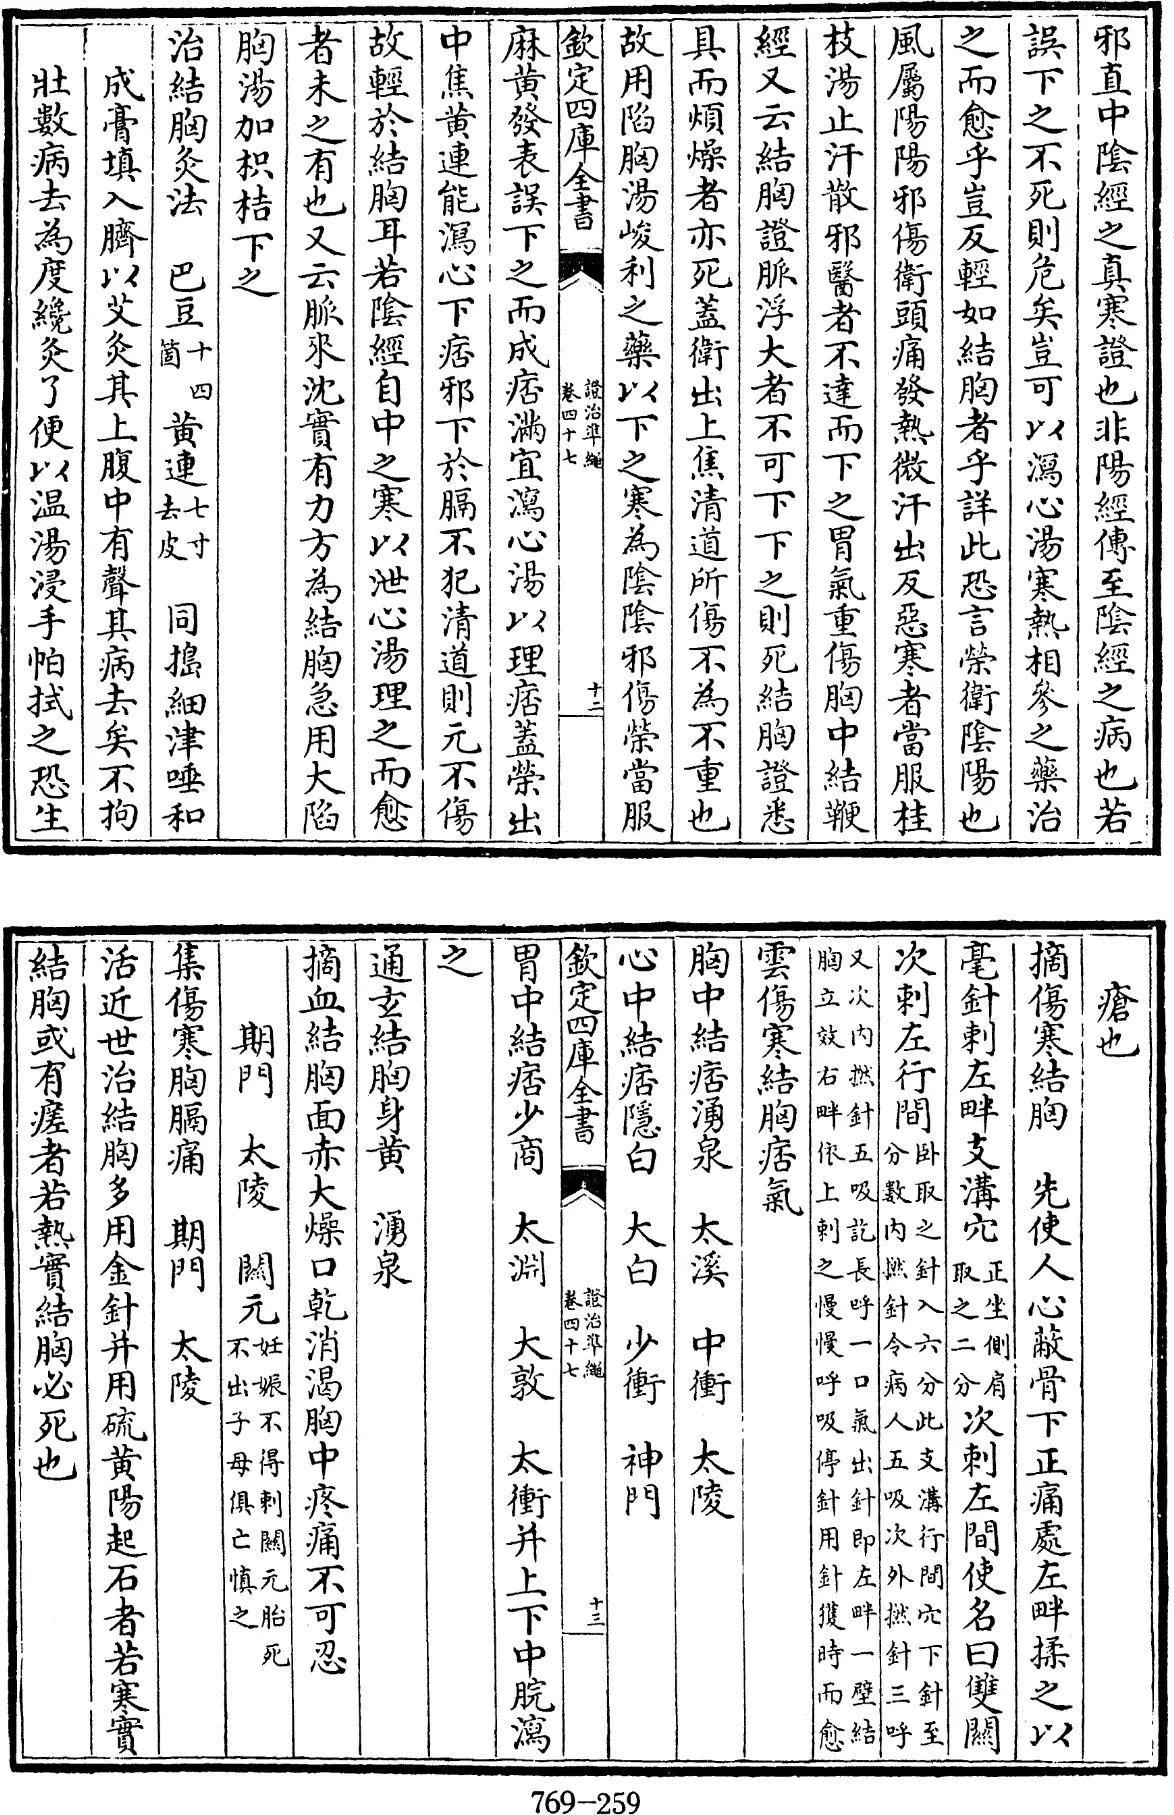 邪直中陰經之真寒證也非陽經傳至陰經之病也若
誤下之不死則危矣豈可以瀉心湯寒熱相參之藥治
之而愈乎豈反輕如結胸者乎詳此恐言榮衛陰陽也
風屬陽陽邪傷衛頭痛發熱微汗出反惡寒者當服桂
枝湯止汗散邪醫者不達而下之胃氣重傷胸中結鞕
經又云結胸證脈浮大者不可下下之則死結胸證悉
具而煩燥者亦死蓋衛出上焦清道所傷不為不重也
故用陷胸湯峻利之藥以下之寒為陰陰邪傷榮當服
欽定四庫全書
證治準繩
卷四十七
十二
麻黄發表誤下之而成痞滿宜瀉心湯以理痞蓋榮出
中焦黄連能瀉心下痞邪下於膈不犯清道則元不傷
故輕於結胸耳若陰經自中之寒以泄心湯理之而愈
者未之有也又云脈來沈實有力方為結胸急用大陷
胸湯加枳桔下之
治結胸灸法 巴豆十四箇 黄連七寸去皮 同搗細津唾和
成膏填入臍以艾灸其上腹中有聲其病去矣不拘
壯數病去為度纔灸了便以温湯浸手帕拭之恐生
瘡也
摘傷寒結胸 先使人心蔽骨下正痛處左畔揉之以
毫針刺左畔支溝穴正坐側肩取之二分次刺左間使名曰雙關
次刺左行間卧取之針入六分此支溝行間穴下針至分數内撚針令病人五吸次外撚針三呼
又次内撚針五吸訖長呼一口氣出針即左畔一壁結胸立效右畔依上刺之慢慢呼吸停針用針獲時而愈
雲傷寒結胸痞氣
胸中結痞湧泉 太溪 中衝 太陵
心中結痞隱白 大白 少衝 神門
欽定四庫全書
證治準繩
卷四十七
十三
胃中結痞少商 太淵 大敦 太衝并上下中脘瀉
之
通玄結胸身黄 湧泉
摘血結胸面赤大燥口乾消渴胸中疼痛不可忍
期門 太陵 關元妊娠不得刺關元胎死不出子母俱亡慎之
集傷寒胸膈痛 期門 太陵
活近世治結胸多用金針并用硫黄陽起石者若寒實
結胸或有瘥者若熱實結胸必死也
769-259